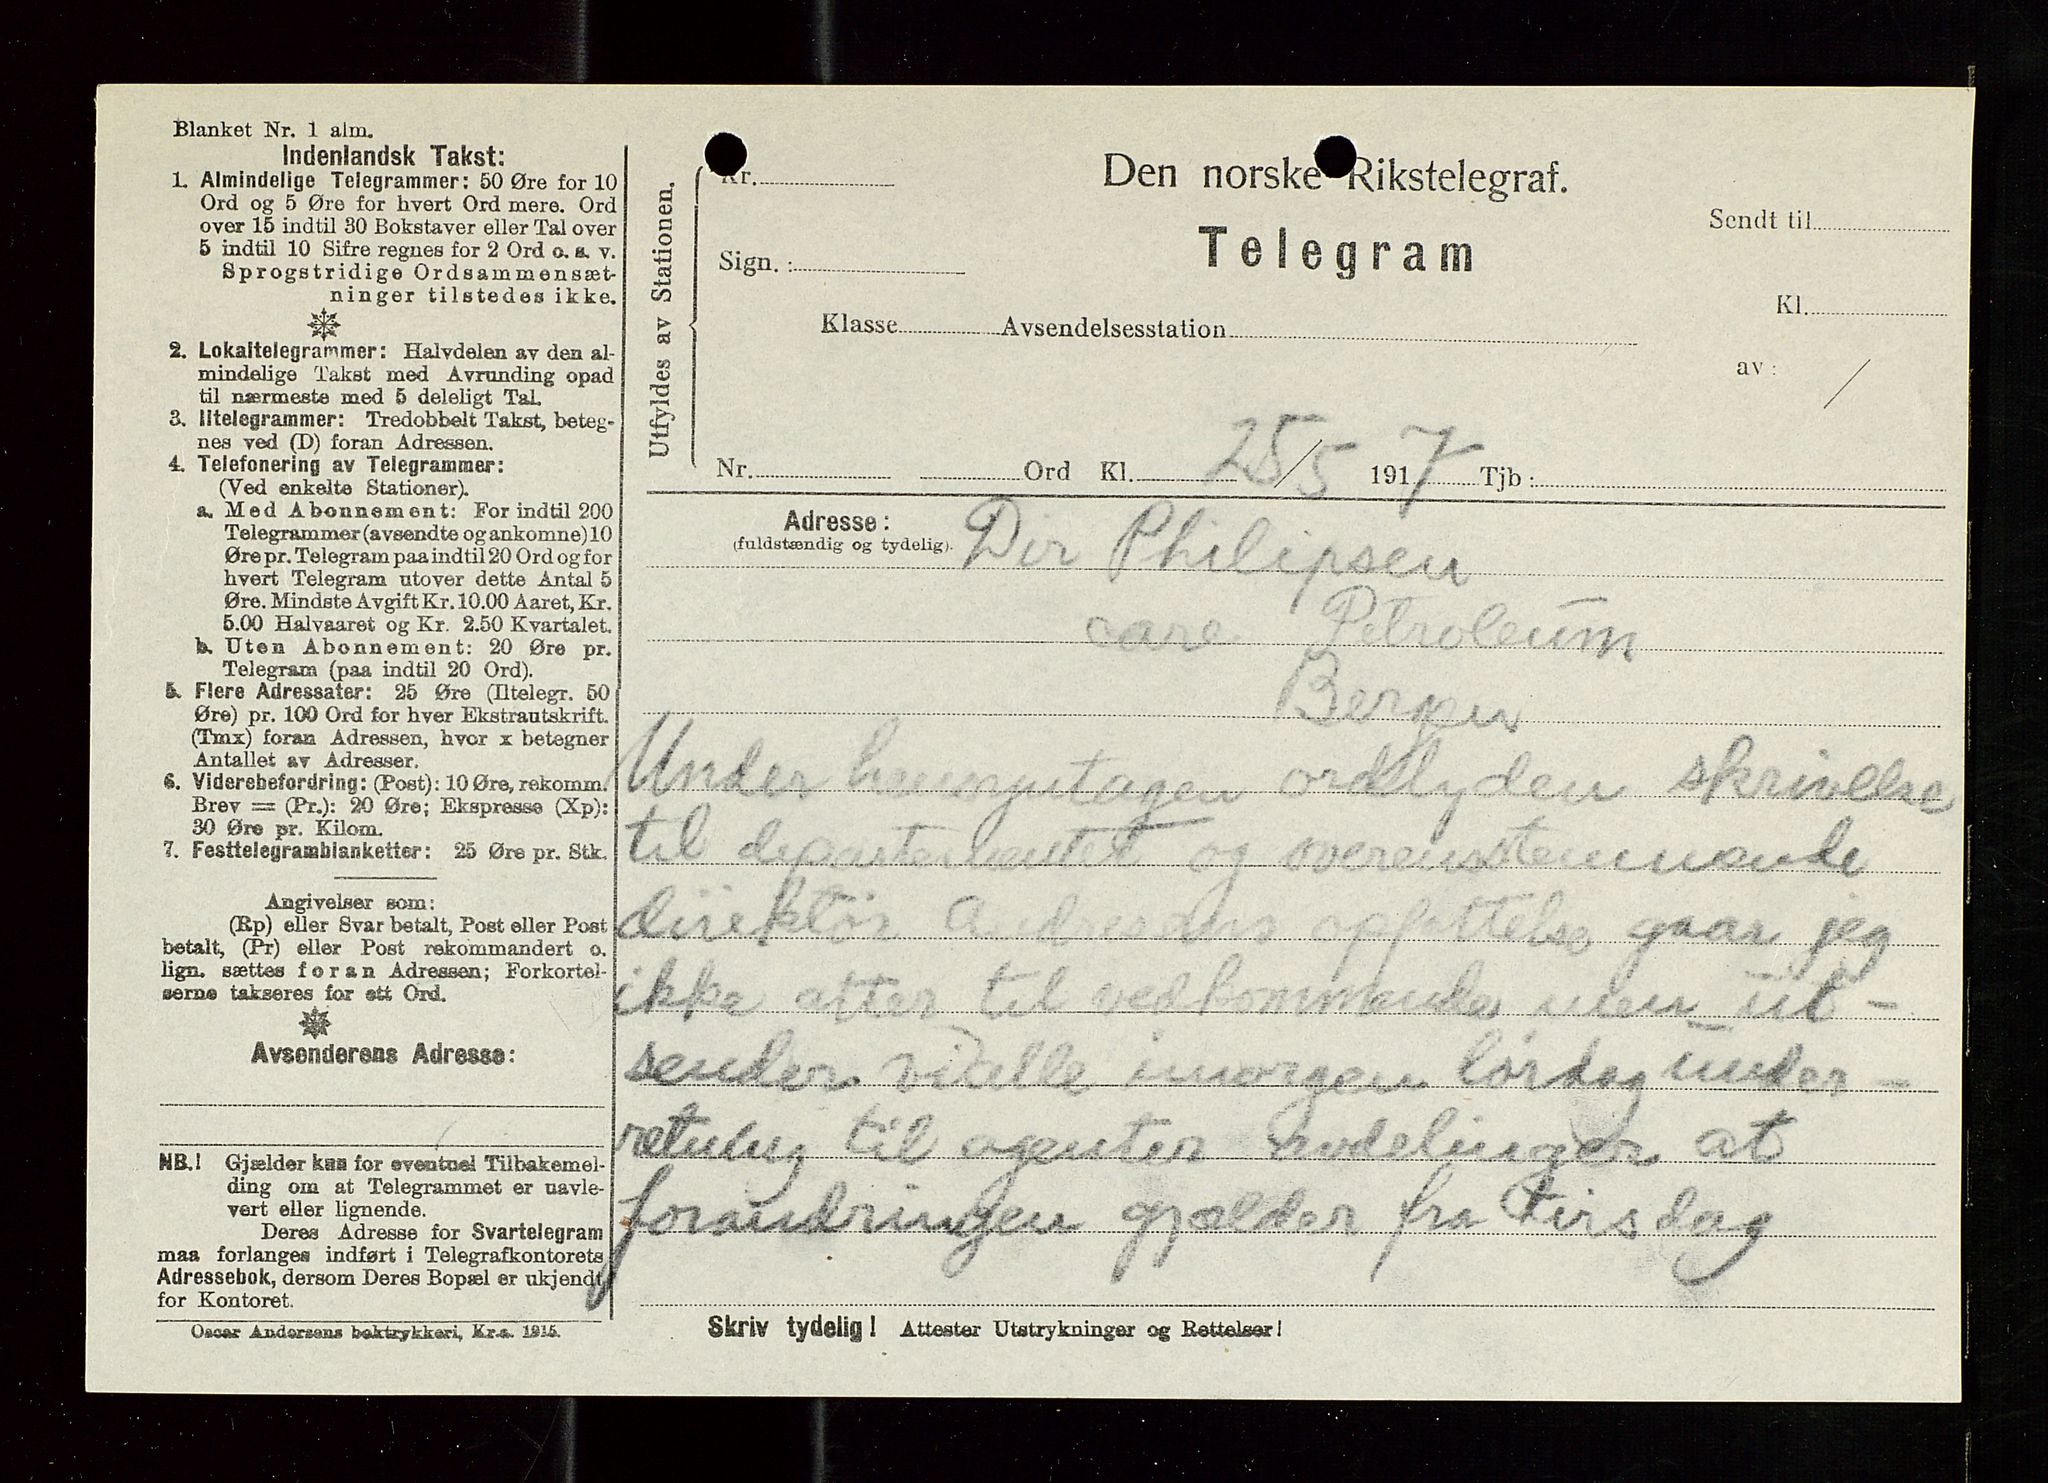 Blanket Nr. 1 alm.
Indenlandsk Takst:
1. Almindelige Telegrammer: 50 Øre for 10
Ord og 5 Øre for hvert Ord mere. Ord
over 15 indtil 30 Bokstaver eller Tal over
5 indtil 10 Sifre regnes for 2 Ord o. s. v.
Sprogstridige Ordsammensæt-
ninger tilstedes ikke.
2. Lokaltelegrammer: Halvdelen av den al-
mindelige Takst med Avrunding opad
til nærmeste med 5 deleligt Tal.
3. Iltelegrammer: Tredobbelt Takst, beteg-
nes ved (D) foran Adressen.
4. Telefonering av Telegrammer:
(Ved enkelte Stationer).
a. Med Abonnement: For indtil 200
Telegrammer (avsendte og ankomne) 10
Øre pr. Telegram paa indtil 20 Ord og for
hvert Telegram utover dette Antal 5
Øre. Mindste Avgift Kr. 10.00 Aaret, Kr.
5.00 Halvaaret og Kr. 2.50 Kvartalet.
b. Uten Abonnement: 20 Øre pr.
Telegram (paa indtil 20 Ord).
5. Flere Adressater: 25 Øre (Iltelegr. 50
Øre) pr. 100 Ord for hver Ekstrautskrift.
(Tmx) foran Adressen, hvor x betegner
Antallet av Adresser.
6. Viderebefordring: (Post): 10 Øre, rekomm.
Brev = (Pr.): 20 Øre; Ekspresse (Xp):
30 Øre pr. Kilom.
7. Festtelegramblanketter: 25 Øre pr. Stk.
Angivelser som:
(Rp) eller Svar betalt, Post eller Post
betalt, (Pr) eller Post rekommandert o.
lign. sættes foran Adressen; Forkortel-
serne takseres for ett Ord.
Avsenderens Adresse:
NB.! Gjælder kun for eventuel Tilbakemel-
ding om at Telegrammet er uavle-
vert eller lignende.
Deres Adresse for Svartelegram
maa forlanges indført i Telegrafkontorets
Adressebok, dersom Deres Bopæl er ukjendt
for Kontoret.
Oscar Andersens boktrykkeri, Kr.a. 1915.
Utfyldes av Stationen.
Kr.
Sign.:
Den norske Rikstelegraf.
Telegram
Sendt til
Kl.
Klasse Avsendelsesstation
av: /
Nr. Ord Kl. 25/5 1917 Tjb:
Adresse: Dir Philipsen
(fuldstændig og tydelig).
care Petroleum
Bergen
Under hensyntagen ordlyden skrivelse
til departementet og overenstemmende
direktör Andresens opfattelse gaar jeg
ikke atter til vedkommende men ut-
sender  imorgen lördag under-
retning til agenter avdelinger at
forandringen gjælder fra tirsdag
Skriv tydelig! Attester Utstrykninger og Rettelser!